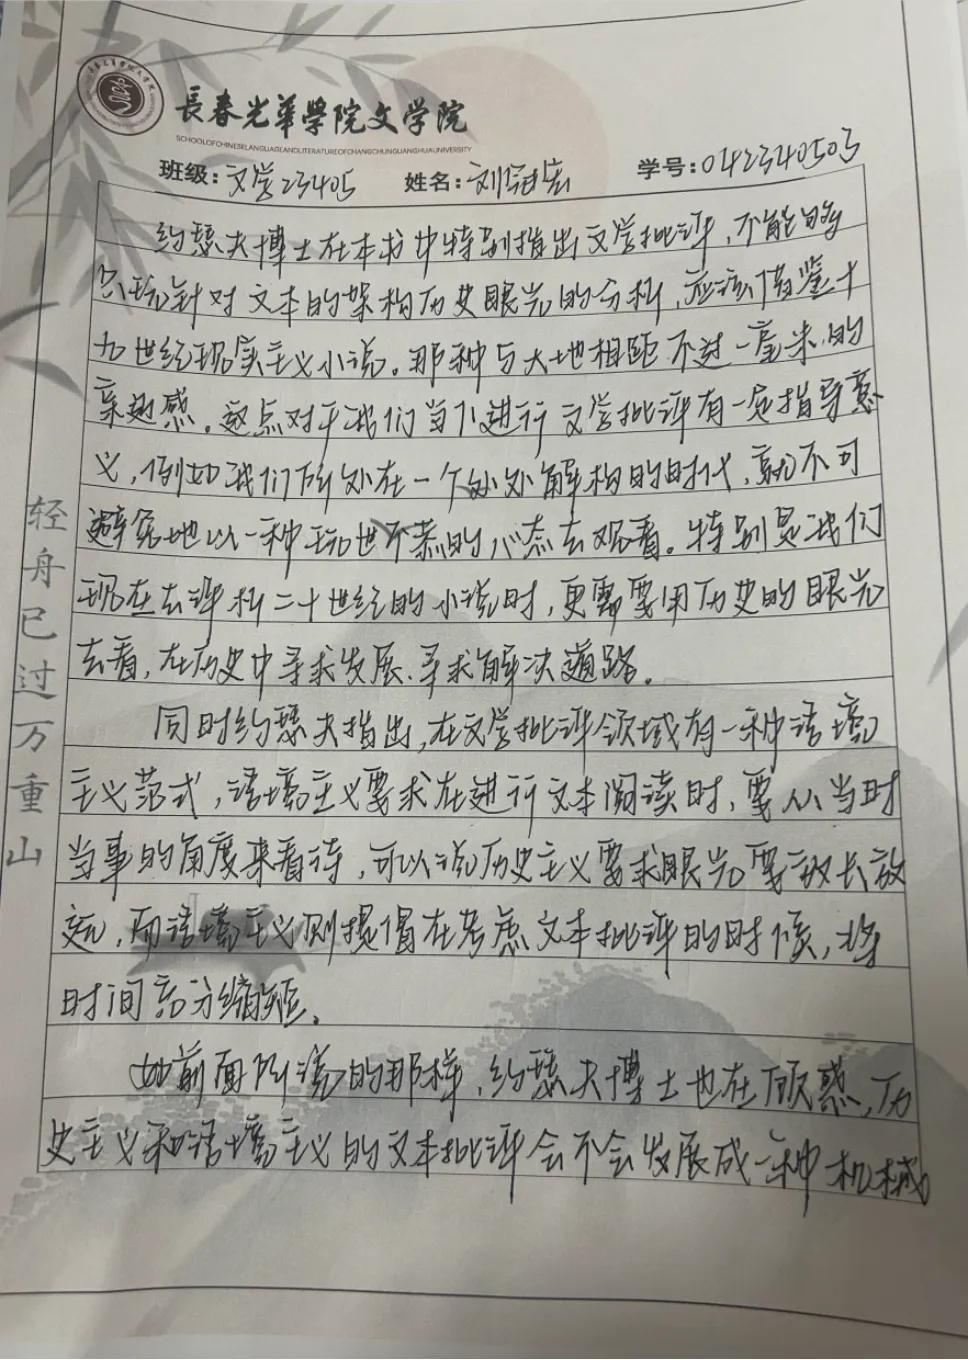 長春光華學院文学院
SCHOOLOFCHINESELANGUAGEANDLITERATUREOFCHANGCHUNGUANGHUAUNIVERSITY
班级:文学23405 姓名:刘冠宏 学号:042340503
约瑟夫博士在本书中特别指出文学批评,不能的
只玩针对文本的架构历史眼光的分析,应该借鉴十
九世纪现实主义小说。那种与大地相距不过一毫米的
亲近感。这点对于我们当下进行文学批评有一定指导意
义,例如我们所处在一个处处解构的时代,就不可
避免地以一种玩世不恭的心态去观看。特别是我们
现在去评析二十世纪的小说时,更需要用历史的眼光
去看,在历史中寻求发展、寻求解决道路。
同时约瑟夫指出,在文学批评领域有一种语境
主义范式,语境主义要求在进行文本阅读时,要从当时
当事的角度来看待,可以说历史主义要求眼光要放长放
远,而语境主义则提倡在考虑文本批评的时候,将
时间部分缩短。
如前面所谈的那样,约瑟夫博士也在顾惑,历
史主义和语境主义的文本批评会不会发展成一种机械
轻舟已过万重山